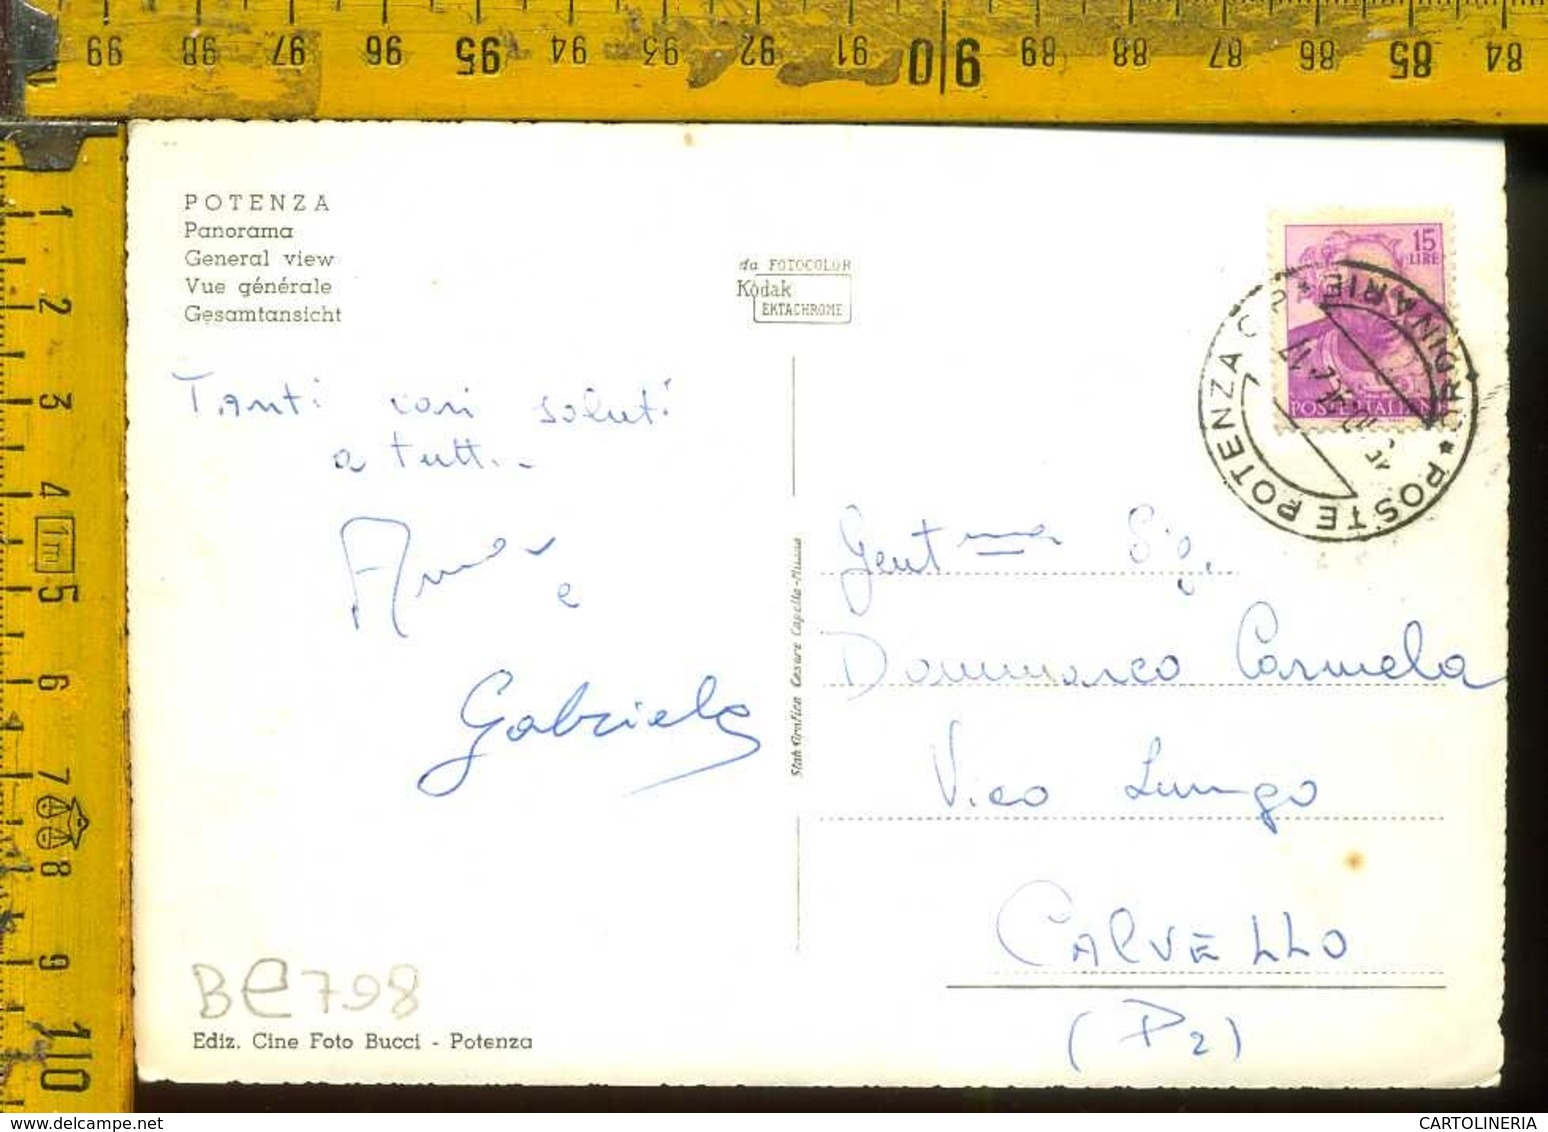 99 98 97 96 95 94 93 92 91 90 89 88 87 86 85 84
1
2
3
4
1m
5
6
7
8
9
10
POTENZA
Panorama
General view
Vue générale
Gesamtansicht
da FOTOCOLOR
Kodak
EKTACHROME
15
LIRE
POSTE ITALIANE
POSTE POTENZA C.P. * ORDINARIE *
Tanti cari saluti
a tutti..
e
Gabriele
Stab Grafico Cesare Capello-Milano
Gent.ma Sig.
Dammiarco Carmela
Vico Lungo
CALVELLO
(PZ)
BC798
Ediz. Cine Foto Bucci - Potenza
CARTOLINERIA